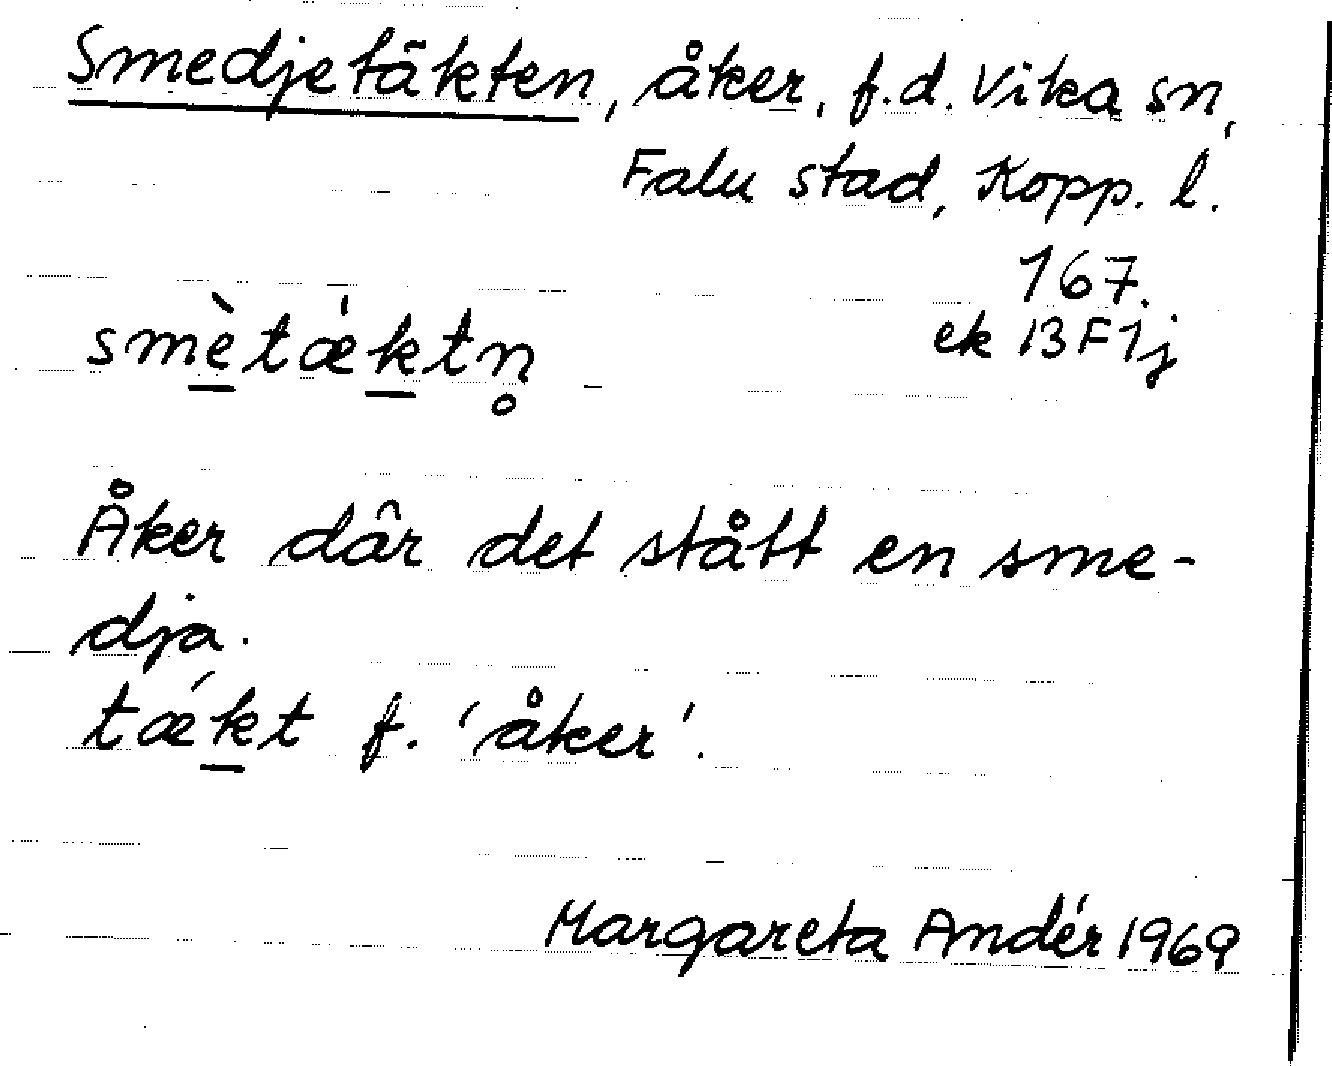 Smedjetäkten, åker, f.d. Vika sn,
Falu stad, Kopp. l.
167.
ek 13F1j
smè̱tǽ̱ktn̥
Åker där det stått en sme-
dja.
tǽ̱kt f. 'åker'.
Margareta Andér 1969